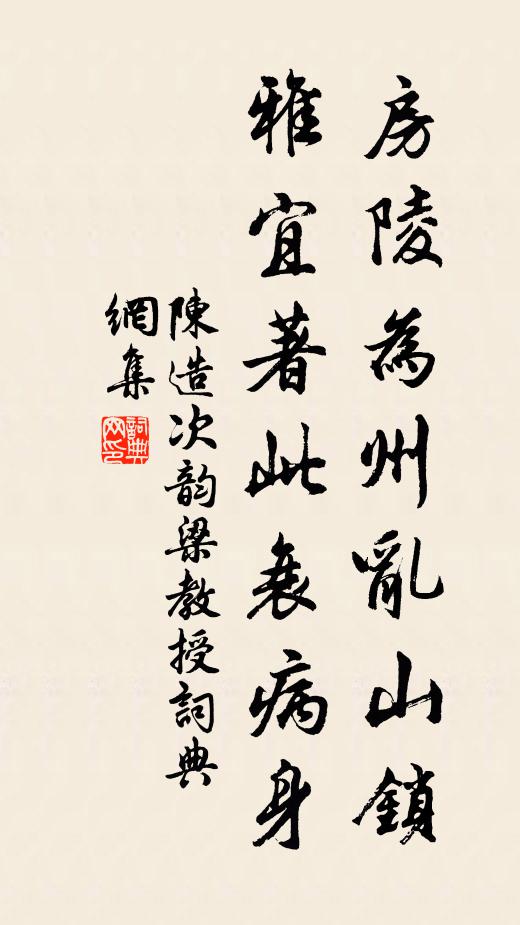 房陵為州亂山鎖
雅宜著此衰病身
陳造次韵梁教授詞典
網集
詞典
网印